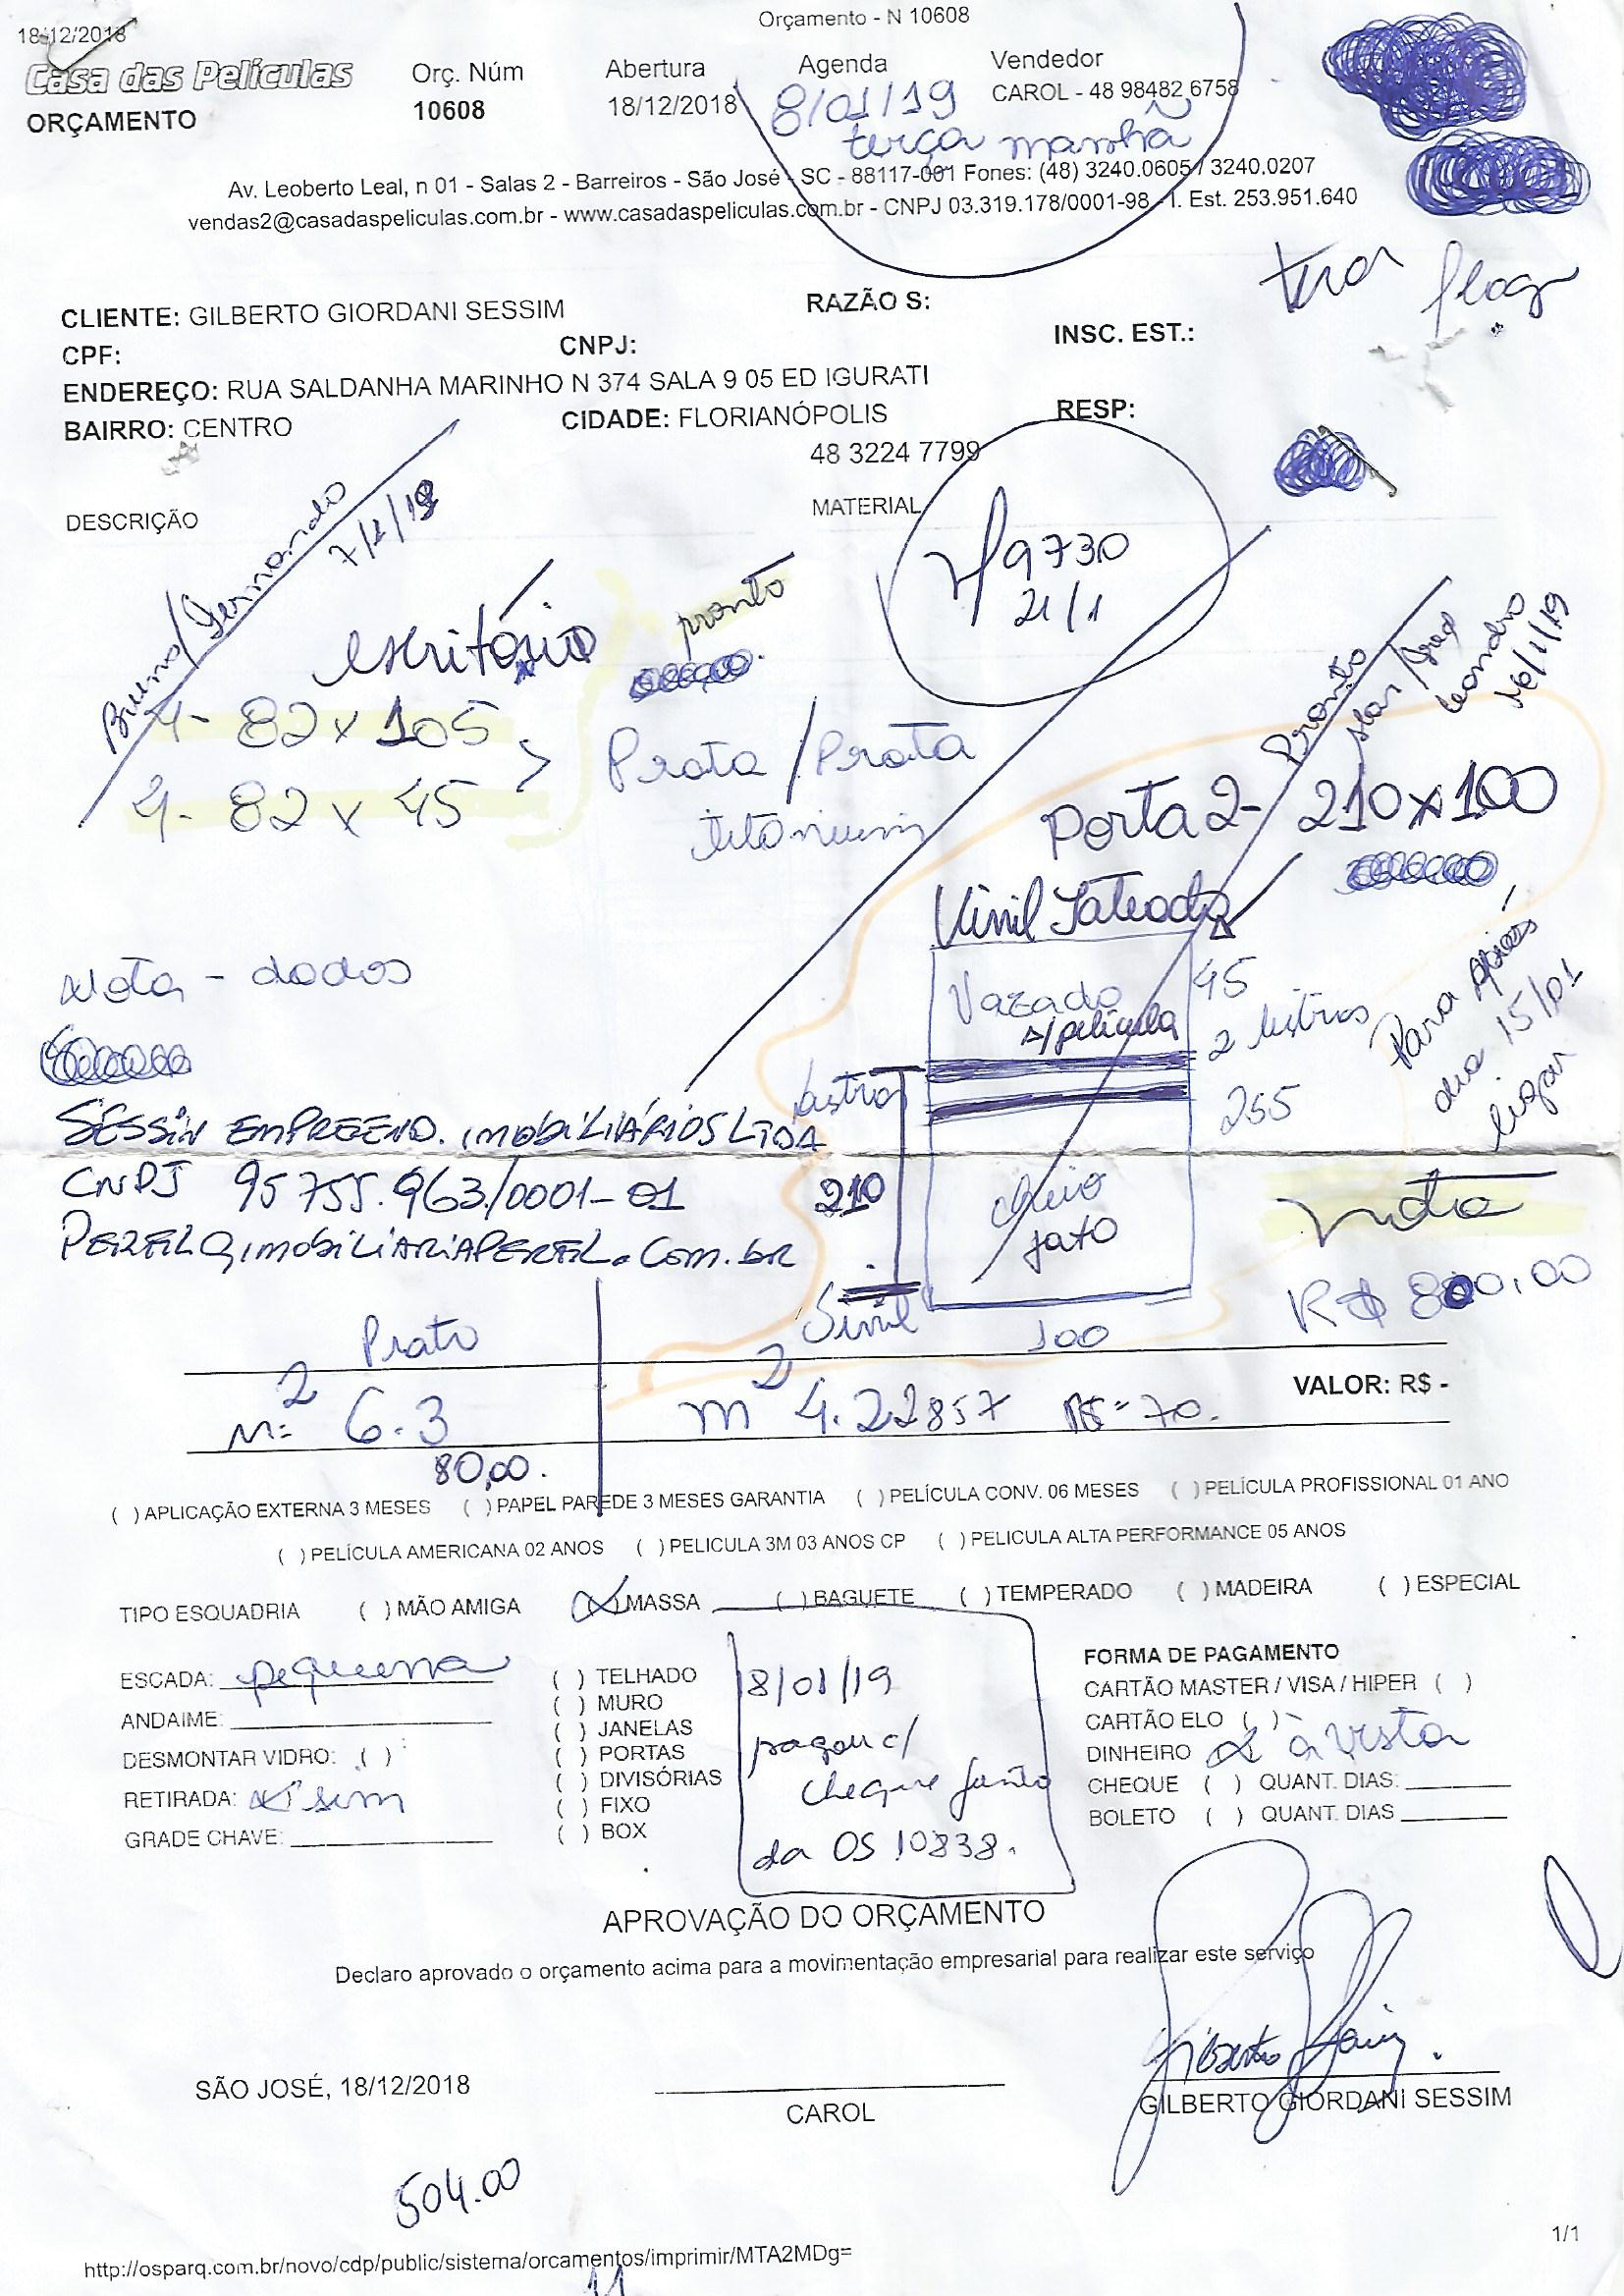 18/12/2018
Orçamento - N 10608
Casa das Películas
ORÇAMENTO
Orç. Núm
10608
Abertura
18/12/2018
Agenda
8/01/19
terça manhã
Vendedor
CAROL - 48 98482 6758
Av. Leoberto Leal, n 01 - Salas 2 - Barreiros - São José - SC - 88117-001 Fones: (48) 3240.0605 / 3240.0207
vendas2@casadaspeliculas.com.br - www.casadaspeliculas.com.br - CNPJ 03.319.178/0001-98 - I. Est. 253.951.640
CLIENTE: GILBERTO GIORDANI SESSIM
RAZÃO S:
CPF:
CNPJ:
INSC. EST.:
ENDEREÇO: RUA SALDANHA MARINHO N 374 SALA 9 05 ED IGURATI
BAIRRO: CENTRO
CIDADE: FLORIANÓPOLIS
RESP:
48 3224 7799
DESCRIÇÃO
MATERIAL
9730
21/1
Bruno/
escritório
pronto
4- 82 x 105
4- 82 x 45
Prata / Prata
titanium
Pronto
leandro
16/1/19
Porta 2- 210 x 100
Vinil Jateado
Vazado
s/película
45
2 listras
255
Para após
dia 15/01
ligar
Nota - dados
SESSIN EMPREEND. IMOBILIÁRIOS LTDA
CNPJ 95 755.963/0001-01
PERFIL@IMOBILIARIAPERFIL.COM.BR
210
jato
100
Nota
R$ 800,00
Prata
m² 6.3
80,00.
m² 4.22857 R$=70.
VALOR: R$ -
( ) APLICAÇÃO EXTERNA 3 MESES ( ) PAPEL PAREDE 3 MESES GARANTIA ( ) PELÍCULA CONV. 06 MESES ( ) PELÍCULA PROFISSIONAL 01 ANO
( ) PELÍCULA AMERICANA 02 ANOS ( ) PELICULA 3M 03 ANOS CP ( ) PELICULA ALTA PERFORMANCE 05 ANOS
TIPO ESQUADRIA ( ) MÃO AMIGA (X) MASSA ( ) BAGUETE ( ) TEMPERADO ( ) MADEIRA ( ) ESPECIAL
ESCADA: pequena
ANDAIME:
DESMONTAR VIDRO: ( )
RETIRADA: X sim
GRADE CHAVE:
( ) TELHADO
( ) MURO
( ) JANELAS
( ) PORTAS
( ) DIVISÓRIAS
( ) FIXO
( ) BOX
18/01/19
pagou c/
cheque junto
da OS 10838.
FORMA DE PAGAMENTO
CARTÃO MASTER / VISA / HIPER ( )
CARTÃO ELO ( )
DINHEIRO (X) à vista
CHEQUE ( ) QUANT. DIAS:
BOLETO ( ) QUANT. DIAS
APROVAÇÃO DO ORÇAMENTO
Declaro aprovado o orçamento acima para a movimentação empresarial para realizar este serviço
SÃO JOSÉ, 18/12/2018
CAROL
GILBERTO GIORDANI SESSIM
504.00
1/1
http://osparq.com.br/novo/cdp/public/sistema/orcamentos/imprimir/MTA2MDg=
11